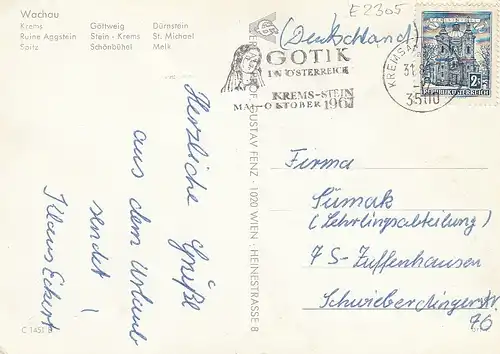 Wachau
Krems Göttweig Dürnstein
Ruine Aggstein Stein - Krems St. Michael
Spitz Schönbühel Melk
E2305
(Deutschland)
GOTIK
IN ÖSTERREICH
KREMS-STEIN
MAI-OKTOBER 1967
KREMS A
31
3500
2S
REPUBLIK ÖSTERREICH
GUSTAV FENZ · 1020 WIEN · HEINESTRASSE 8
Herzliche Grüße
aus dem Urlaub
sendet !
Klaus Eckert
Firma
Sümak
(Lehrlingsabteilung)
7 S-Zuffenhausen
Schwieberdingerstr.
76
C 1451 B